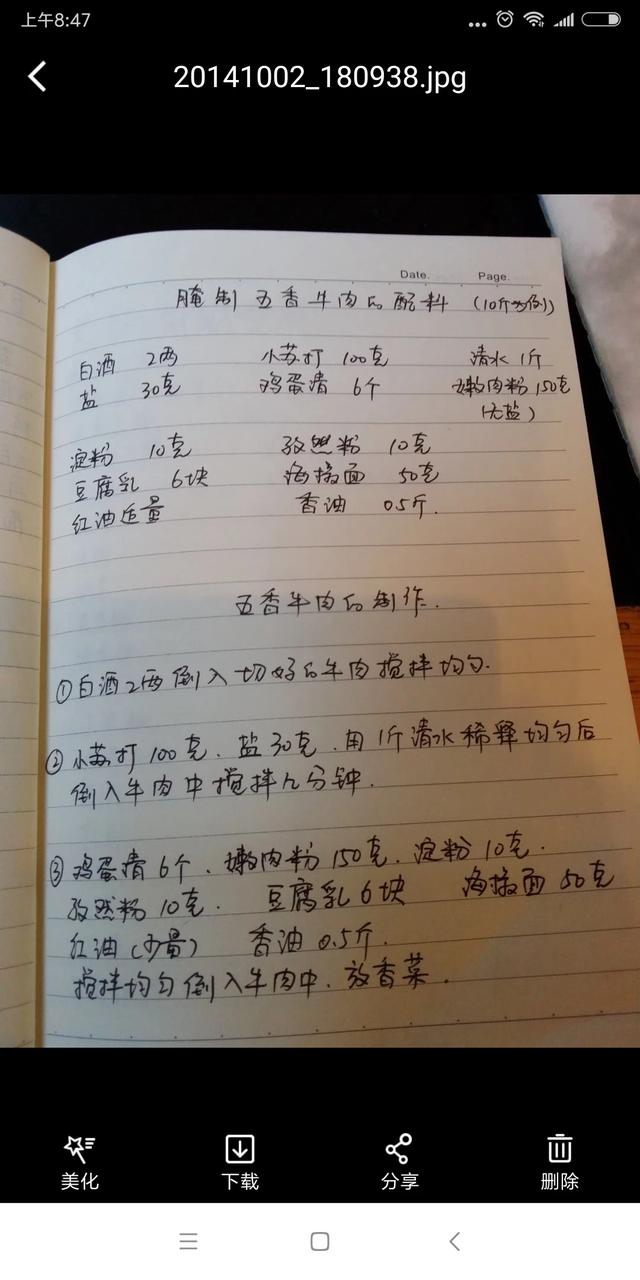 上午8:47
20141002_180938.jpg
Date. Page.
腌制五香牛肉的配料 (10斤为例)
白酒 2两 小苏打 100克 清水 1斤
盐 30克 鸡蛋清 6个 嫩肉粉 150克
(无盐)
淀粉 10克 孜然粉 10克
豆腐乳 6块 海椒面 50克
红油适量 香油 0.5斤.
五香牛肉的制作.
①白酒2两倒入切好的牛肉搅拌均匀.
②小苏打100克. 盐30克. 用1斤清水稀释均匀后
倒入牛肉中搅拌几分钟.
③鸡蛋清6个、嫩肉粉150克. 淀粉10克.
孜然粉10克. 豆腐乳6块 海椒面50克
红油(少量) 香油0.5斤.
搅拌均匀倒入牛肉中. 放香菜.
美化 下载 分享 删除